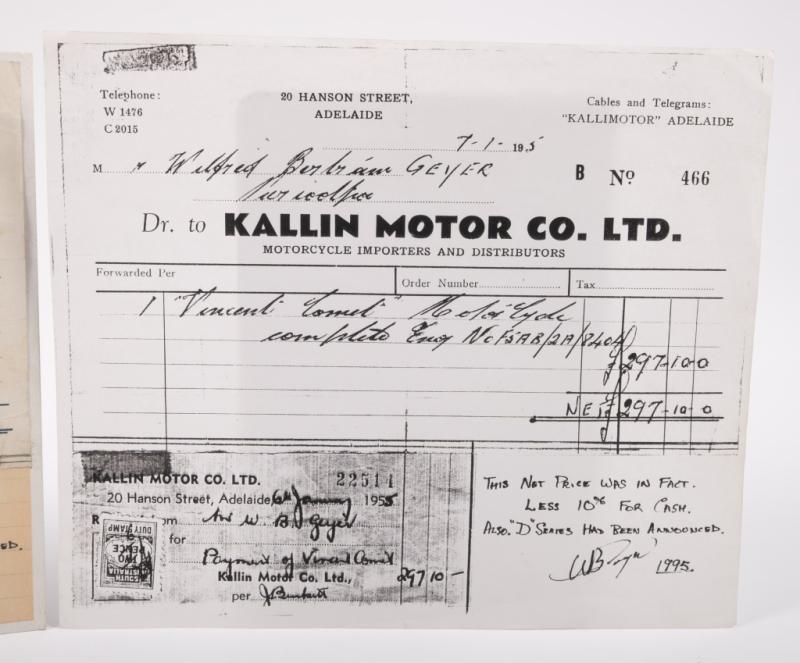 Telephone:
W 1476
C 2015
20 HANSON STREET,
ADELAIDE
Cables and Telegrams:
"KALLIMOTOR" ADELAIDE
7-1- 195
M r Wilfred Bertram GEYER
B No 466
Nuriootpa
Dr. to KALLIN MOTOR CO. LTD.
MOTORCYCLE IMPORTERS AND DISTRIBUTORS
Forwarded Per
Order Number
Tax
1 "Vincent Comet" Motor Cycle
complete Eng No F5AB/2A/8404
£297-10-0
NET £297-10-0
KALLIN MOTOR CO. LTD. 22511
20 Hanson Street, Adelaide, 6th January 1955
R om Mr W. B. Geyer
for
Payment of Vincent Comet
Kallin Motor Co. Ltd., 297 10 -
per
DUTY STAMP
TWO
PENCE
SOUTH
AUSTRALIA
THIS NET PRICE WAS IN FACT.
LESS 10% FOR CASH.
ALSO. "D" SERIES HAS BEEN ANNOUNCED.
1995.
ED.